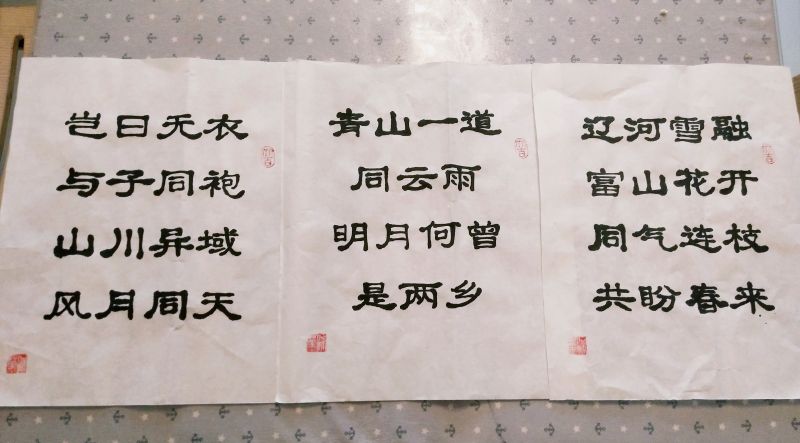 岂曰无衣
与子同袍
山川异域
风月同天
青山一道
同云雨
明月何曾
是两乡
辽河雪融
富山花开
同气连枝
共盼春来